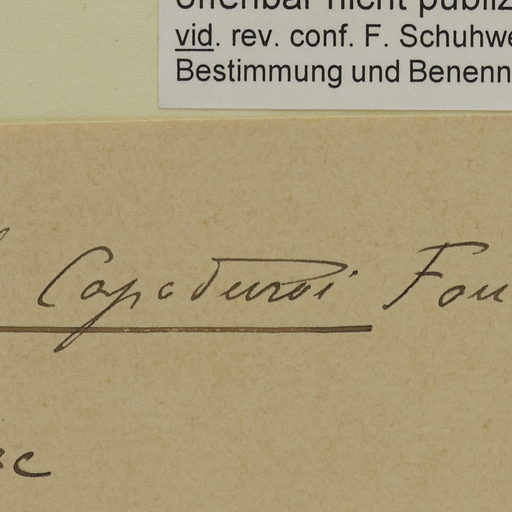 offenbar nicht publiz
vid. rev. conf. F. Schuhwe
Bestimmung und Benenn
Fou